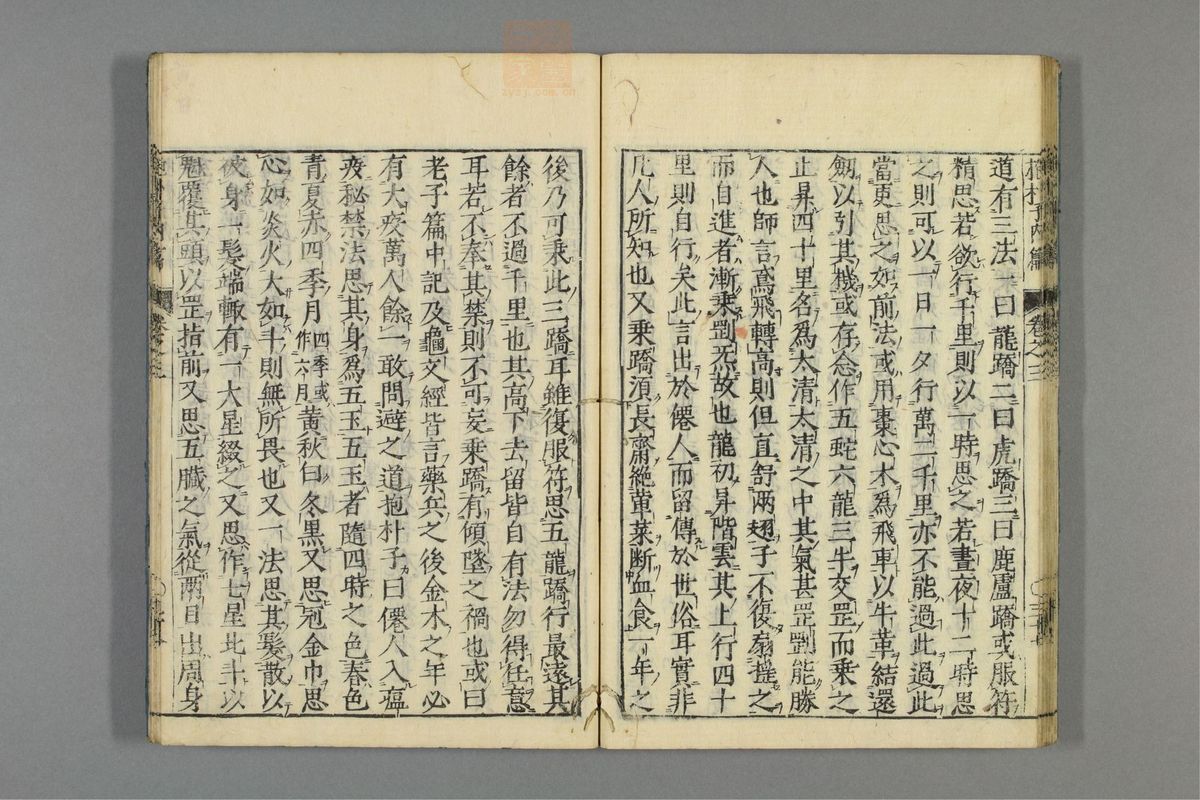 道有三法一曰龍蹻二曰虎蹻三曰鹿盧蹻或服符
精思若欲行千里則以一時思之若晝夜十二時思
之則可以一日一夕行萬二千里亦不能過此過此
當更思之如前法或用棗心木爲飛車以牛革結還
劒以引其機或存念作五蛇六龍三牛交罡而乘之
止昇四十里名爲太清太清之中其氣甚罡剛能勝
人也師言鳶飛轉高則但直舒兩翅了不復扇搖之
而自進者漸乘剛炁故也龍初昇階雲其上行四十
里則自行矣此言出於僊人而留傳於世俗耳實非
凡人所知也又乘蹻須長齋絶葷菜斷血食一年之
後乃可乘此三蹻耳雖復服符思五龍蹻行最遠其
餘者不過千里也其高下去留皆自有法勿得任意
耳若不奉其禁則不可妄乘蹻有傾墜之禍也或曰
老子篇中記及龜文經皆言藥兵之後金木之年必
有大疫萬人餘一敢問避之道抱朴子曰僊人入瘟
疫秘禁法思其身爲五玉五玉者隨四時之色春色
青夏赤四季月四季或作六月黃秋白冬黑又思冠金巾思
心如炎火大如斗則無所畏也又一法思其髮散以
被身一髮端輙有一大星綴之又思作七星北斗以
魁覆其頭以罡指前又思五臟之氣從兩目出周身